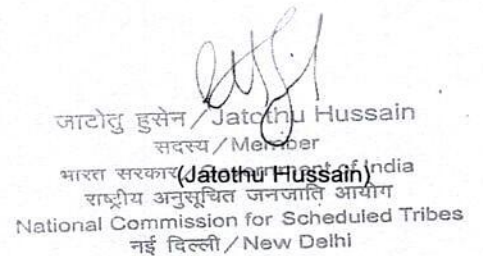 जाटोतु हुसेन / Jatothu Hussain
सदस्य / Member
भारत सरकार / Government of India
(Jatothu Hussain)
राष्ट्रीय अनुसूचित जनजाति आयोग
National Commission for Scheduled Tribes
नई दिल्ली / New Delhi